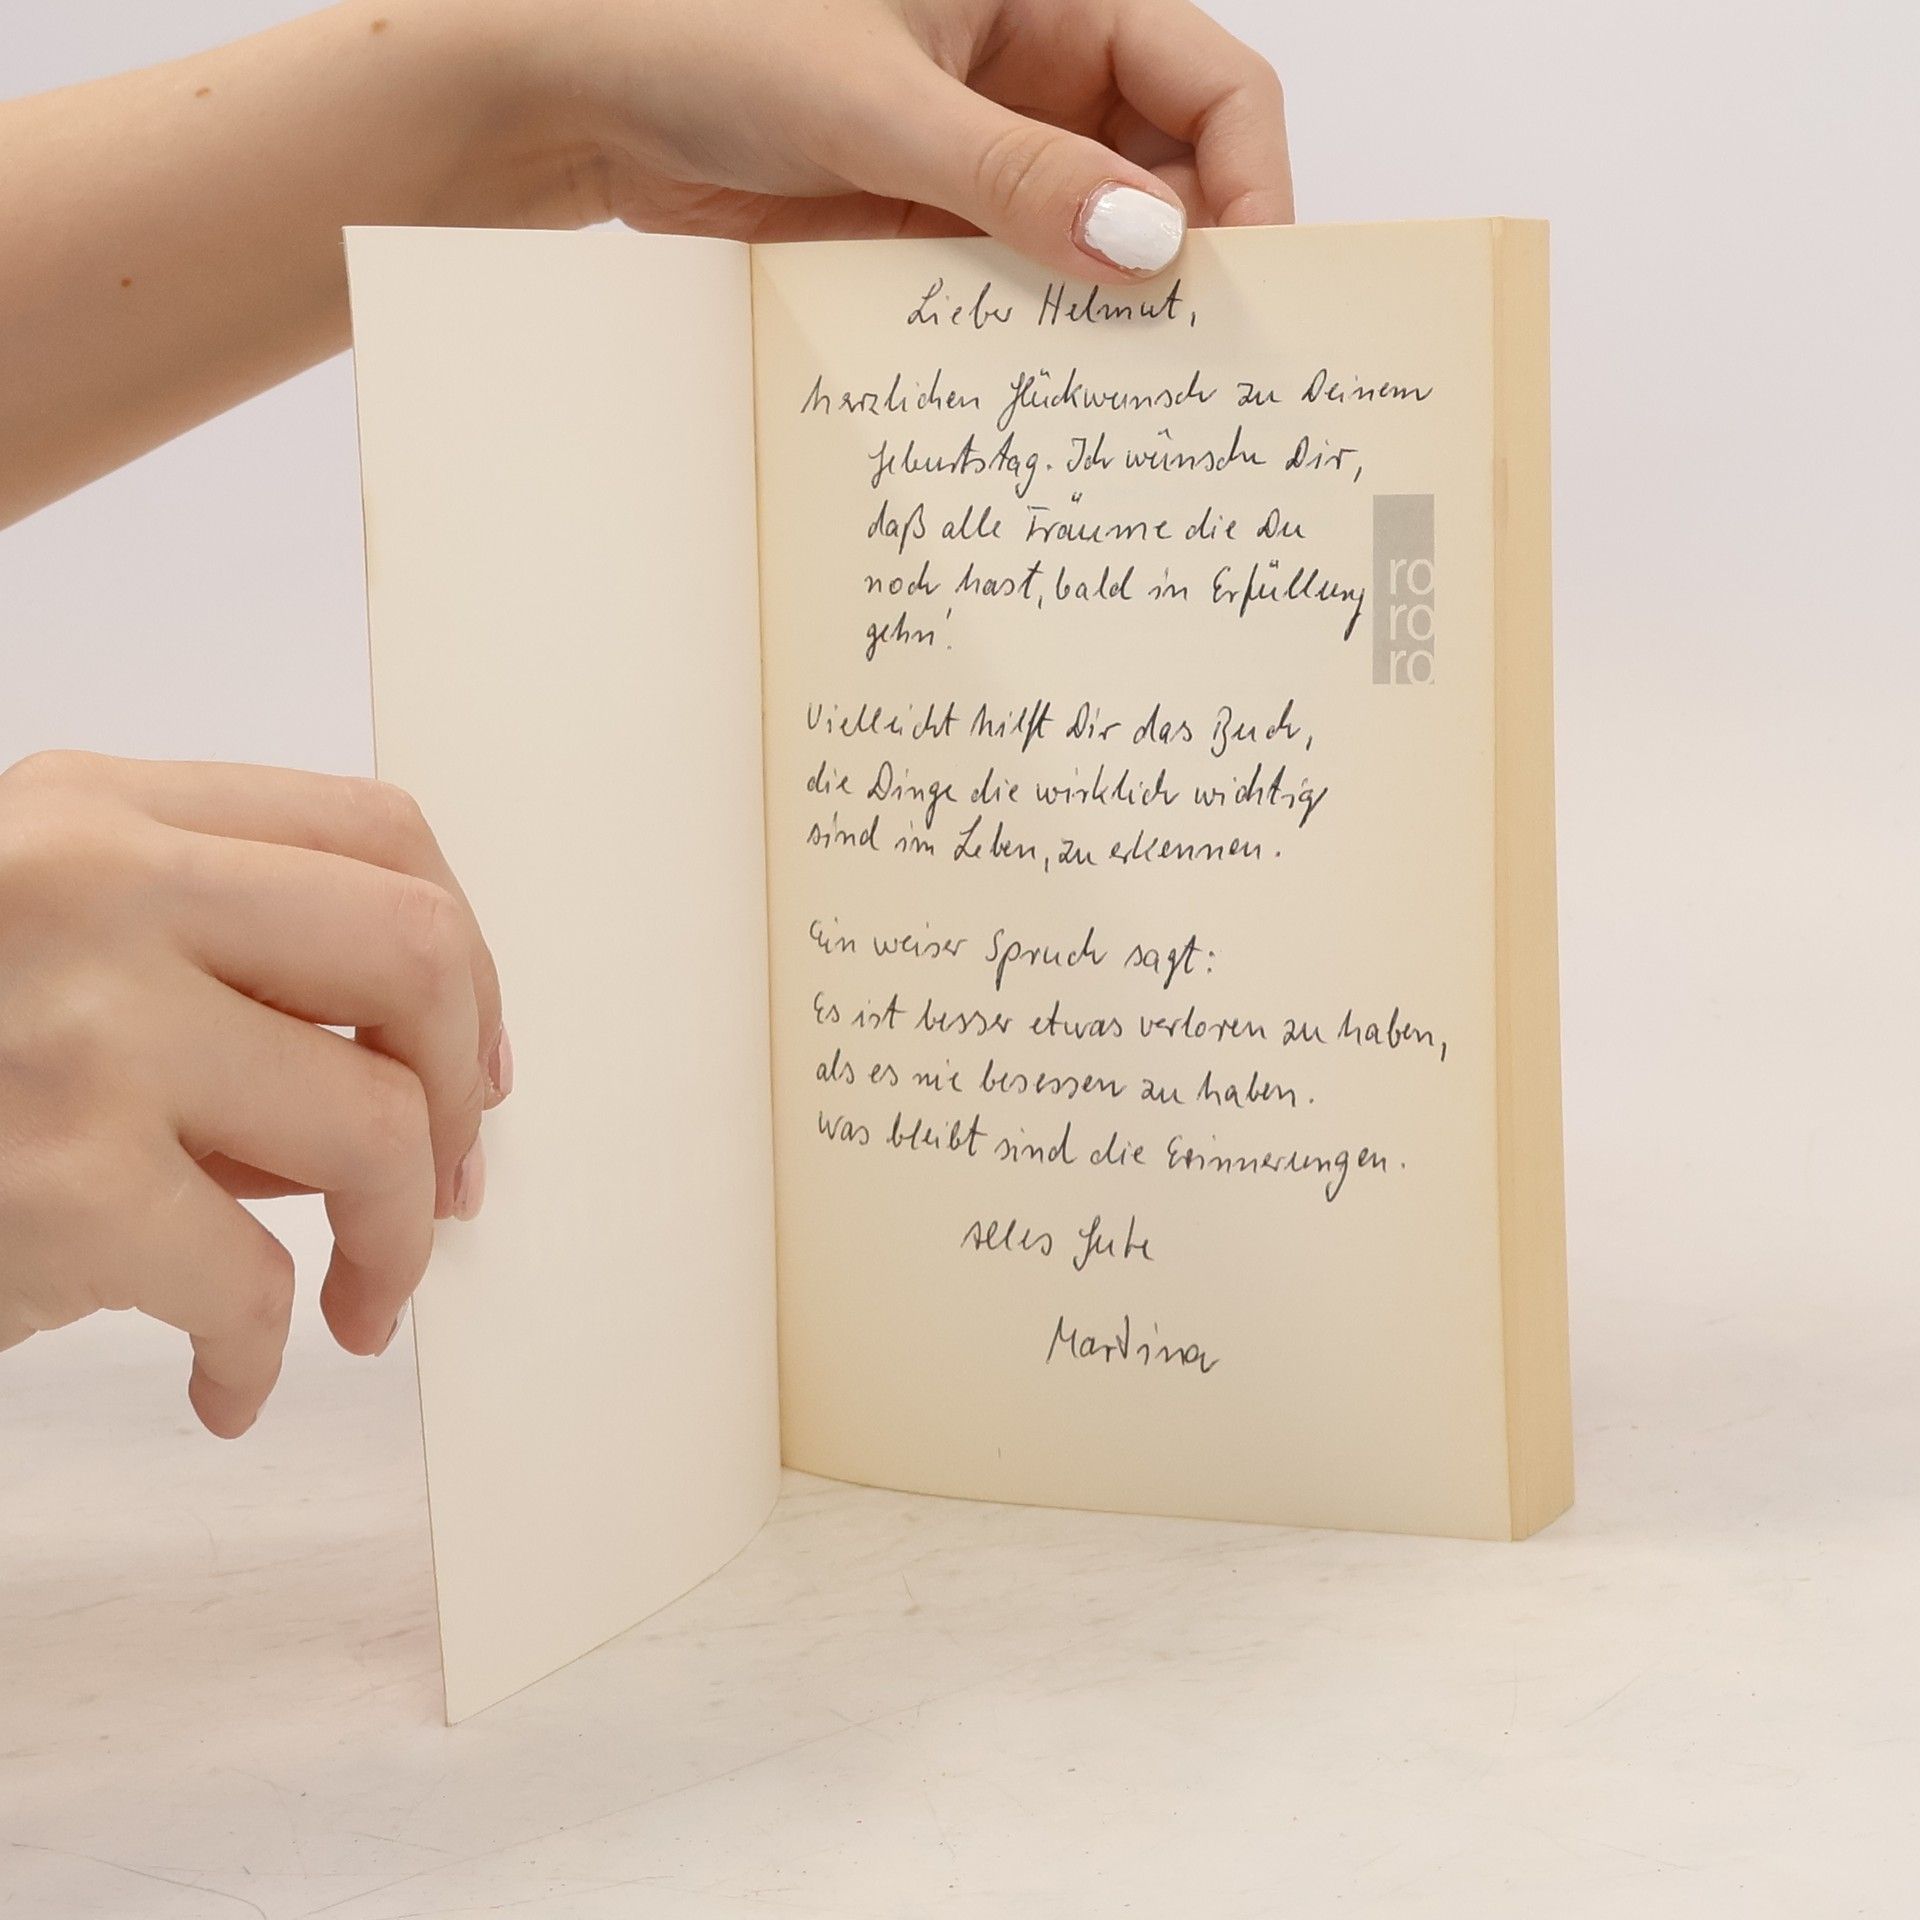 Lieber Helmut,
herzlichen Glückwunsch zu Deinem
Geburtstag. Ich wünsche Dir,
daß alle Träume die Du
noch hast, bald in Erfüllung
gehn!
ro
ro
ro
Vielleicht hilft Dir das Buch,
die Dinge die wirklich wichtig
sind im Leben, zu erkennen.
Ein weiser Spruch sagt:
Es ist besser etwas verloren zu haben,
als es nie besessen zu haben.
Was bleibt sind die Erinnerungen.
Alles Gute
Martina